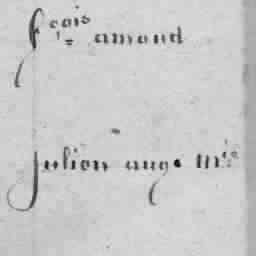 fçois amond
Julien auge m^is